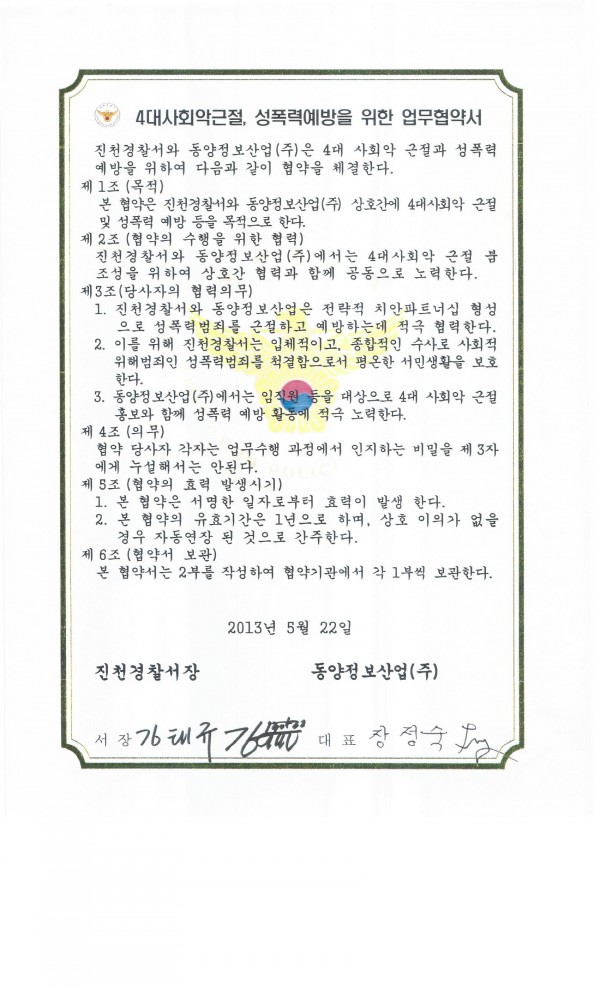 4대사회악근절, 성폭력예방을 위한 업무협약서
진천경찰서와 동양정보산업(주)은 4대 사회악 근절과 성폭력
예방을 위하여 다음과 같이 협약을 체결한다.
제1조 (목적)
본 협약은 진천경찰서와 동양정보산업(주) 상호간에 4대사회악 근절
및 성폭력 예방 등을 목적으로 한다.
제2조 (협약의 수행을 위한 협력)
진천경찰서와 동양정보산업(주)에서는 4대사회악 근절 붐
조성을 위하여 상호간 협력과 함께 공동으로 노력한다.
제3조(당사자의 협력의무)
1. 진천경찰서와 동양정보산업은 전략적 치안파트너십 형성
으로 성폭력범죄를 근절하고 예방하는데 적극 협력한다.
2. 이를 위해 진천경찰서는 입체적이고, 종합적인 수사로 사회적
위해범죄인 성폭력범죄를 척결함으로서 평온한 서민생활을 보호
한다.
3. 동양정보산업(주)에서는 임직원 등을 대상으로 4대 사회악 근절
홍보와 함께 성폭력 예방 활동에 적극 노력한다.
제4조 (의무)
협약 당사자 각자는 업무수행 과정에서 인지하는 비밀을 제3자
에게 누설해서는 안된다.
제5조 (협약의 효력 발생시기)
1. 본 협약은 서명한 일자로부터 효력이 발생 한다.
2. 본 협약의 유효기간은 1년으로 하며, 상호 이의가 없을
경우 자동연장 된 것으로 간주한다.
제6조 (협약서 보관)
본 협약서는 2부를 작성하여 협약기관에서 각 1부씩 보관한다.
2013년 5월 22일
진천경찰서장 동양정보산업(주)
서장 김태규 대표 장정숙